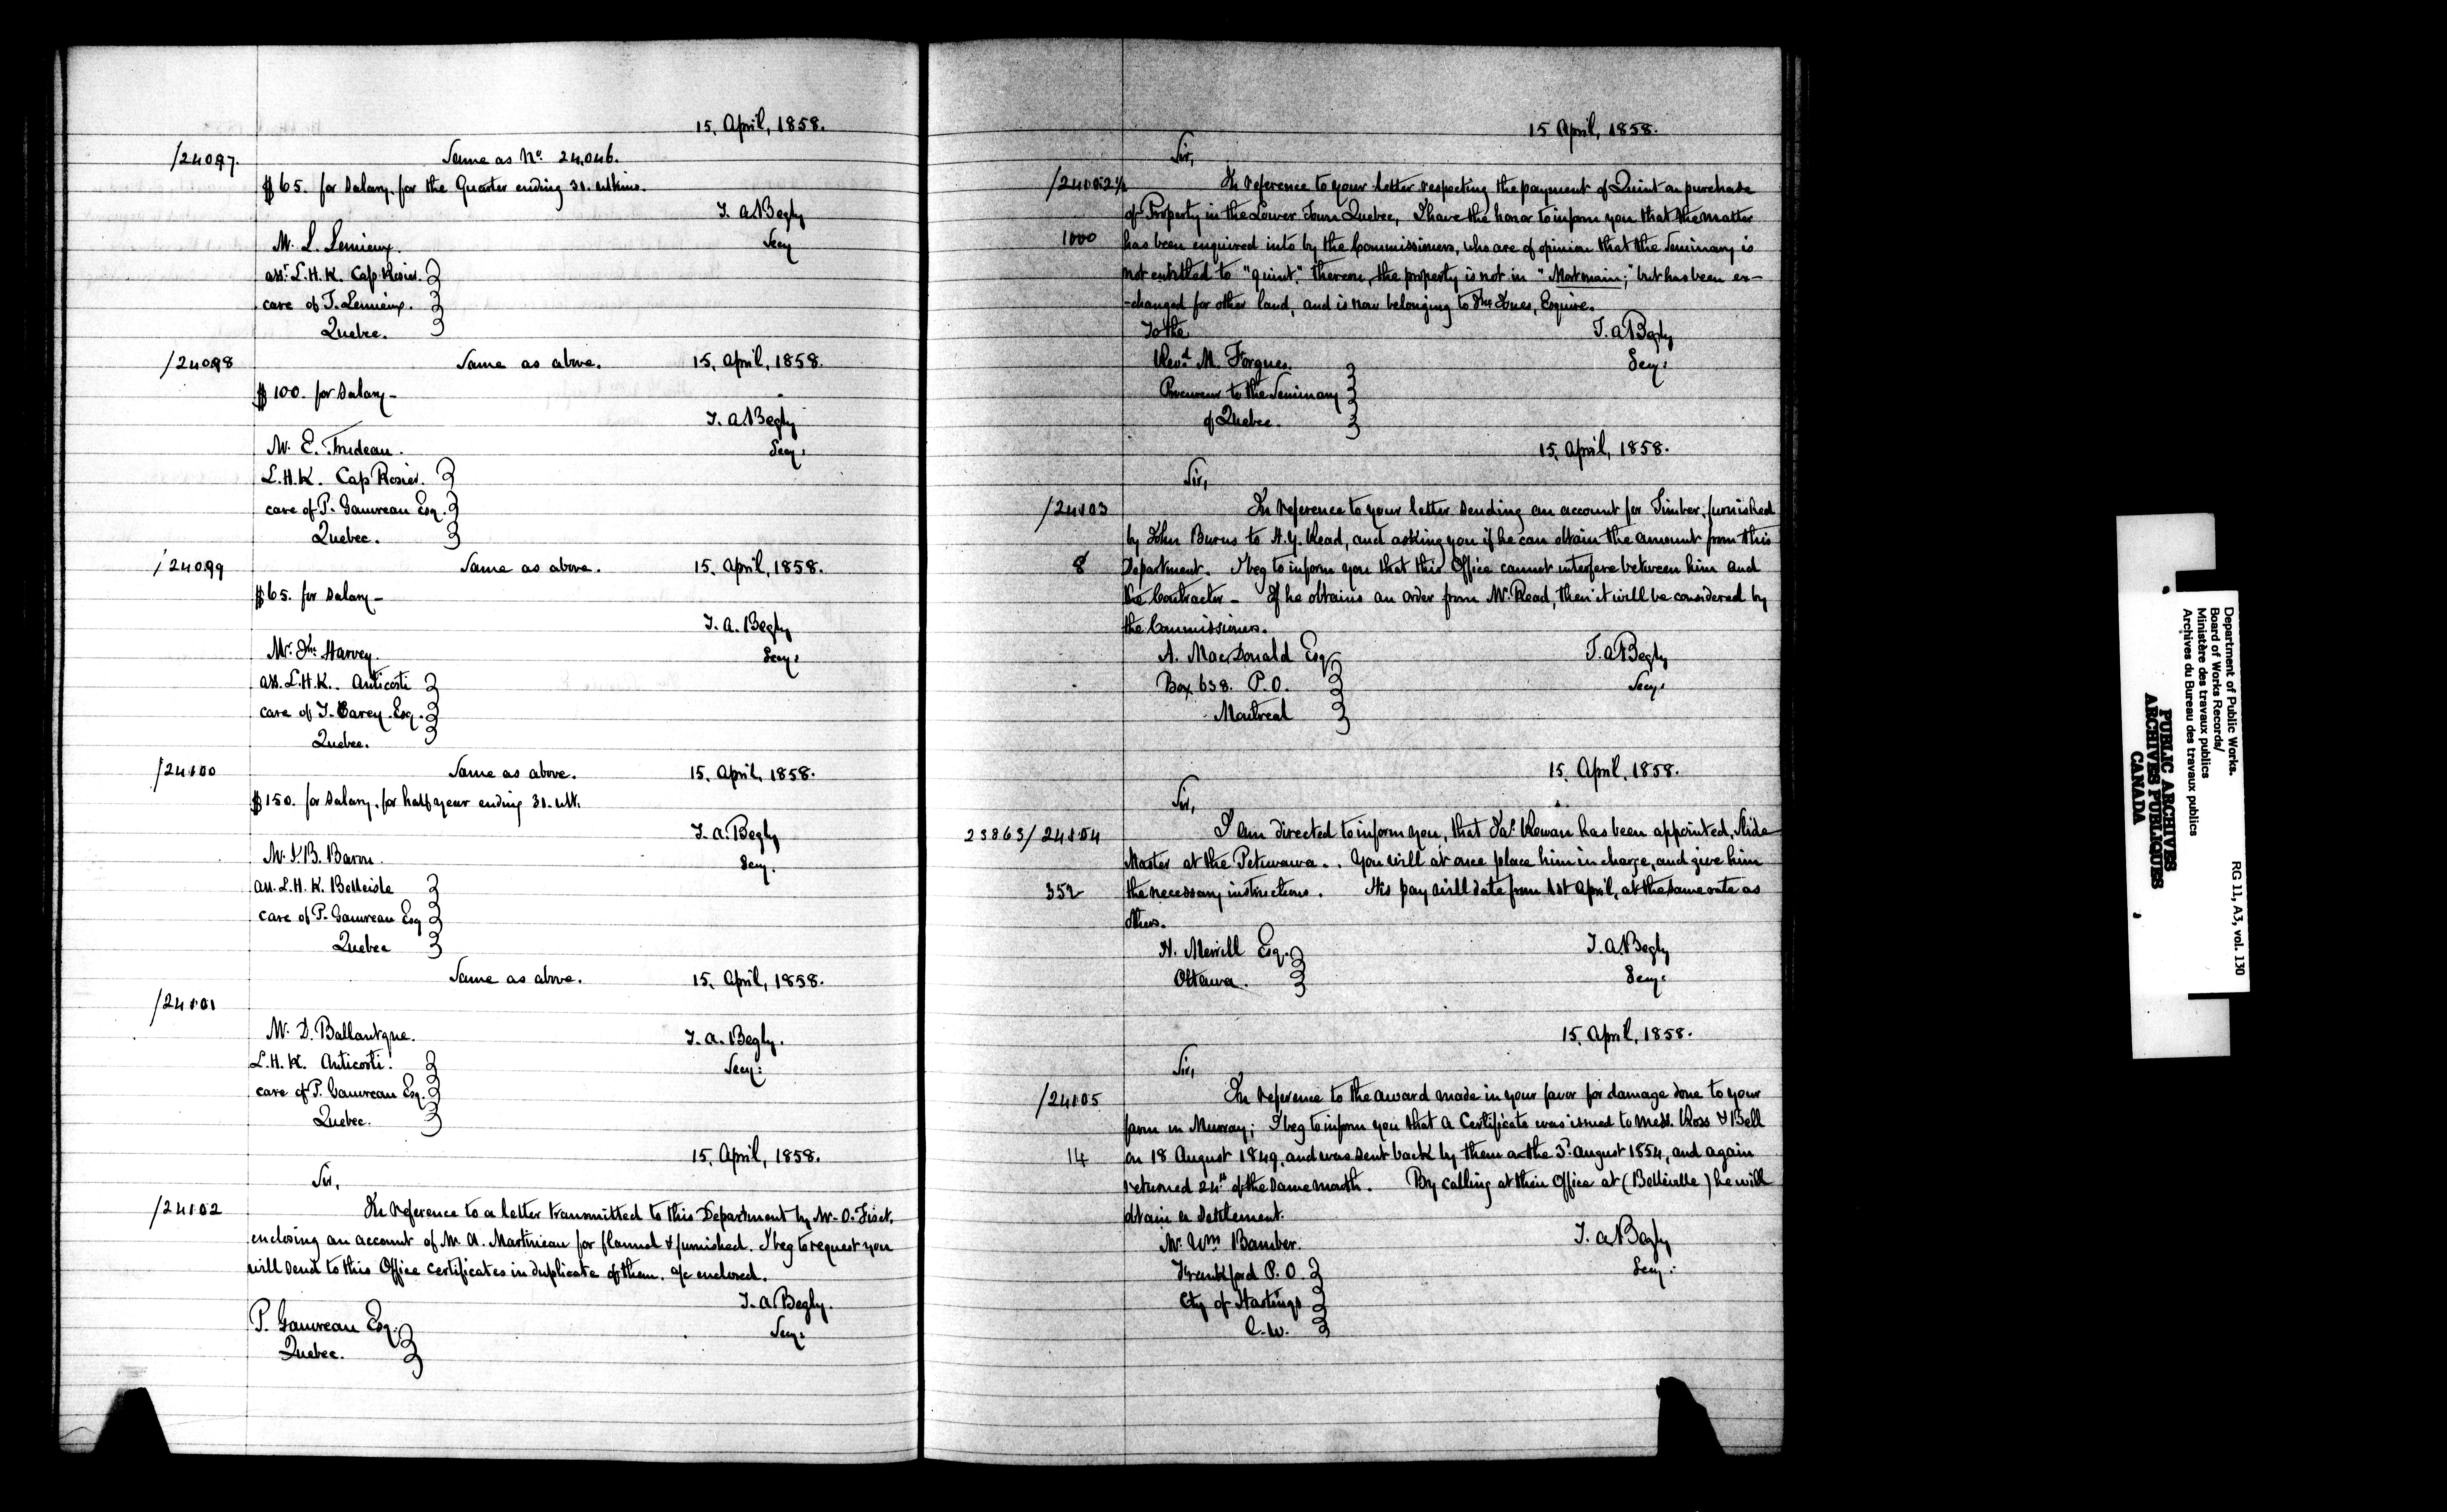 15, April, 1858.
/24097. Same as No. 24,046.
$65. for Salary for the Quarter ending 31. ultimo.
T. A. Begly
Secy
Mr. L. Lemieux.
asst. L.H.K. Cap Rosier.
care of T. Lemieux.
Quebec.
/24098 Same as above. 15, April, 1858.
$100. for Salary –
T. A. Begly
Secy:
Mr. E. Trudeau.
L.H.K. Cap Rosier.
care of P. Gauvreau Esq.
Quebec.
/24099 Same as above. 15, April, 1858.
$65. for Salary –
T. A. Begly
Secy:
Mr. Jno. Harvey.
ass. L.H.K. Anticosti
care of T. Carey. Esq.
Quebec.
/24100 Same as above. 15, April, 1858.
$150. for Salary, for half year ending 31. ult.
T. A. Begly
Secy.
Mr. J. B. Baron.
ass. L.H.K. Belleisle
care of P. Gauvreau Esq
Quebec
Same as above. 15, April, 1858.
/24101
Mr. D. Ballantyne.
T. A. Begly.
L.H.K. Anticosti.
Secy:
care of P. Gauvreau Esq.
Quebec.
15, April, 1858.
Sir,
/24102 In reference to a letter transmitted to this Department by Mr. O. Fiset,
enclosing an account of M. A. Martineau for flannel & furnished. I beg to request you
will send to this Office certificates in duplicate of them. a/c enclosed.
T. A. Begly.
Secy:
P. Gauvreau Esq.
Quebec.
15 April, 1858.
Sir,
/24102½ In reference to your letter respecting the payment of Quint on purchase
of Property in the Lower Town Quebec, I have the honor to inform you that the matter
1000 has been enquired into by the Commissioners, who are of opinion that the Seminary is
not entitled to "quint." thereon, the property is not in "Mortmain;" but has been ex-
-changed for other land, and is now belonging to Jno. Jones, Esquire.
To the
T. A. Begly
Revd. M. Forgues.
Secy:
Procureur to the Seminary
of Quebec.
15, April, 1858.
Sir,
/24103 In reference to your letter sending an account for Timber, furnished
by John Burns to H.Y. Read, and asking you if he can obtain the amount from this
8 Department. I beg to inform you that this Office cannot interfere between him and
the Contractor – If he obtains an order from Mr. Read, then it will be considered by
the Commissioners.
A. MacDonald Esq
T. A. Begly
Box 638. P.O.
Secy:
Montreal
15, April, 1858.
Sir,
23863/24104 I am directed to inform you, that Jas. Rowan has been appointed, Slide
Master at the Petewawa. . You will at once place him in charge, and give him
352 the necessary instructions. His pay will date from 1st April, at the same rate as
others.
H. Merrill Esq.
T. A. Begly
Ottawa.
Secy:
15, April, 1858.
Sir,
/24105 In reference to the award made in your favor for damage done to your
farm in Murray; I beg to inform you that a Certificate was issued to Mess. Ross & Bell
14 on 18 August 1849, and was sent back by them on the 3d. August 1854, and again
returned 24th of the same month. By calling at their Office at (Belleville) he will
obtain a settlement.
Mr. Wm. Bamber.
T. A. Begly
Frankford P.O.
Secy:
Cty of Hastings
C.W.
Department of Public Works.
Board of Works Records/
Ministère des travaux publics
Archives du Bureau des travaux publics
RG 11, A3, vol. 130
PUBLIC ARCHIVES
ARCHIVES PUBLIQUES
CANADA